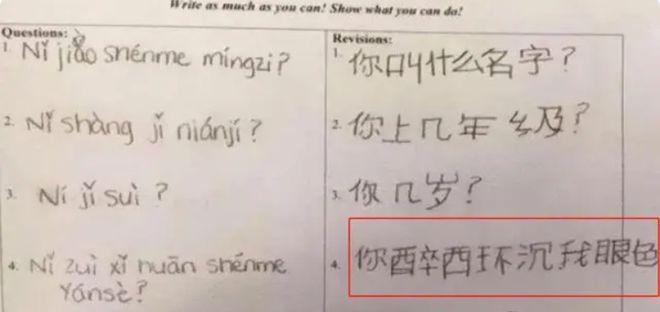 Write as much as you can! Show what you can do!
Questions:
Revisions:
1. Nǐ jiào shénme míngzi?
1. 你叫什么名字?
2. Nǐ shàng jǐ niánjí?
2. 你上几年级?
3. Ní jǐ suì?
3. 你几岁?
4. Nǐ zuì xǐ huān shénme
Yánsè?
4. 你醉西环沉我眼色